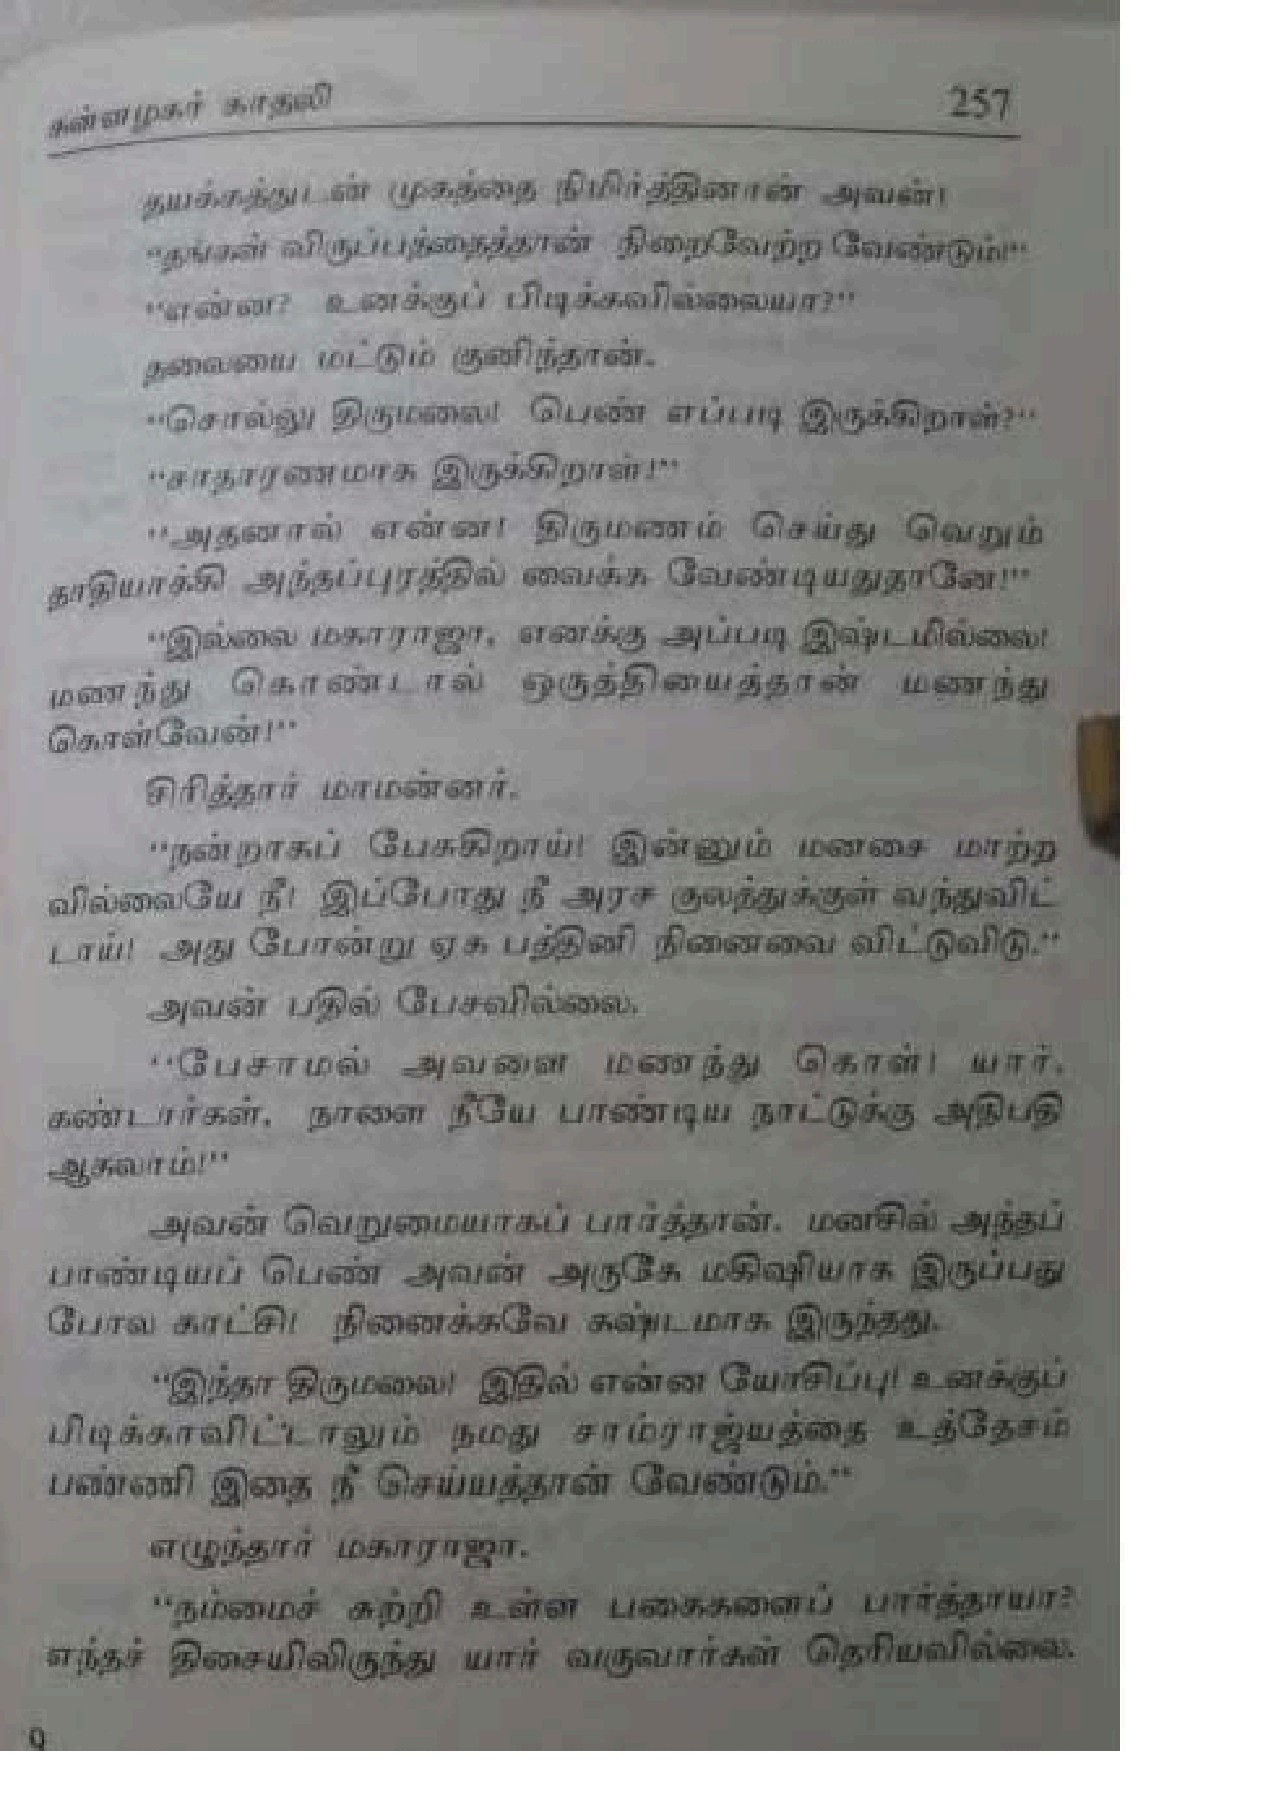 கன்னமுகர் காதலி 257
தயக்கத்துடன் முகத்தை நிமிர்த்தினான் அவன்!
“தங்கள் விருப்பத்தைத்தான் நிறைவேற்ற வேண்டும்!”
“என்ன? உனக்குப் பிடிக்கவில்லையா?”
தலையை மட்டும் குனிந்தான்.
“சொல்லு திருமலை! பெண் எப்படி இருக்கிறாள்?”
“சாதாரணமாக இருக்கிறாள்!”
“அதனால் என்ன! திருமணம் செய்து வெறும்
தாதியாக்கி அந்தப்புரத்தில் வைக்க வேண்டியதுதானே!”
“இல்லை மகாராஜா. எனக்கு அப்படி இஷ்டமில்லை!
மணந்து கொண்டால் ஒருத்தியைத்தான் மணந்து
கொள்வேன்!”
சிரித்தார் மாமன்னர்.
“நன்றாகப் பேசுகிறாய்! இன்னும் மனசை மாற்ற
வில்லையே நீ! இப்போது நீ அரச குலத்துக்குள் வந்துவிட்
டாய்! அது போன்று ஏக பத்தினி நினைவை விட்டுவிடு.”
அவன் பதில் பேசவில்லை.
“பேசாமல் அவளை மணந்து கொள்! யார்.
கண்டார்கள். நாளை நீயே பாண்டிய நாட்டுக்கு அதிபதி
ஆகலாம்!”
அவன் வெறுமையாகப் பார்த்தான். மனசில் அந்தப்
பாண்டியப் பெண் அவன் அருகே மகிஷியாக இருப்பது
போல காட்சி! நினைக்கவே கஷ்டமாக இருந்தது.
“இந்தா திருமலை! இதில் என்ன யோசிப்பு! உனக்குப்
பிடிக்காவிட்டாலும் நமது சாம்ராஜ்யத்தை உத்தேசம்
பண்ணி இதை நீ செய்யத்தான் வேண்டும்.”
எழுந்தார் மகாராஜா.
“நம்மைச் சுற்றி உள்ள பகைகளைப் பார்த்தாயா?
எந்தச் திசையிலிருந்து யார் வருவார்கள் தெரியவில்லை.